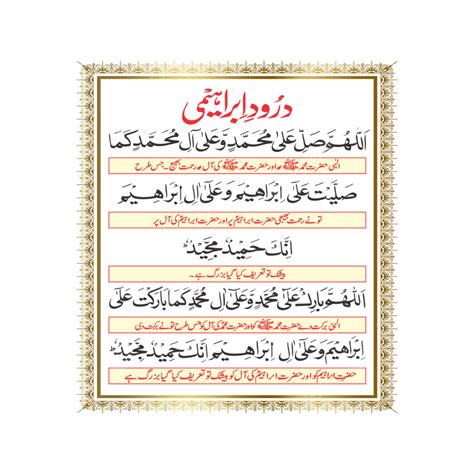 درود ابراہیمی
اَللّٰهُمَّ صَلِّ عَلٰى مُحَمَّدٍ وَّعَلٰٓى اٰلِ مُحَمَّدٍ كَمَا
الٰہی حضرت محمد ﷺ اور حضرت محمد ﷺ کی آل پر رحمت بھیج۔ جس طرح
صَلَّيْتَ عَلٰٓى اِبْرَاهِيْمَ وَعَلٰٓى اٰلِ اِبْرَاهِيْمَ
تو نے رحمت بھیجی حضرت ابراہیمؑ پر اور حضرت ابراہیمؑ کی آل پر
اِنَّكَ حَمِيْدٌ مَّجِيْدٌ
بیشک تو تعریف کیا گیا بزرگ ہے۔
اَللّٰهُمَّ بَارِكْ عَلٰى مُحَمَّدٍ وَّعَلٰٓى اٰلِ مُحَمَّدٍ كَمَا بَارَكْتَ عَلٰٓى
الٰہی برکت دے حضرت محمد ﷺ کو اور حضرت محمد کی آل کو جس طرح تو نے برکت دی
اِبْرَاهِيْمَ وَعَلٰٓى اٰلِ اِبْرَاهِيْمَ اِنَّكَ حَمِيْدٌ مَّجِيْدٌ
حضرت ابراہیم کو اور حضرت ابراہیمؑ کی آل کو بیشک تو تعریف کیا گیا بزرگ ہے